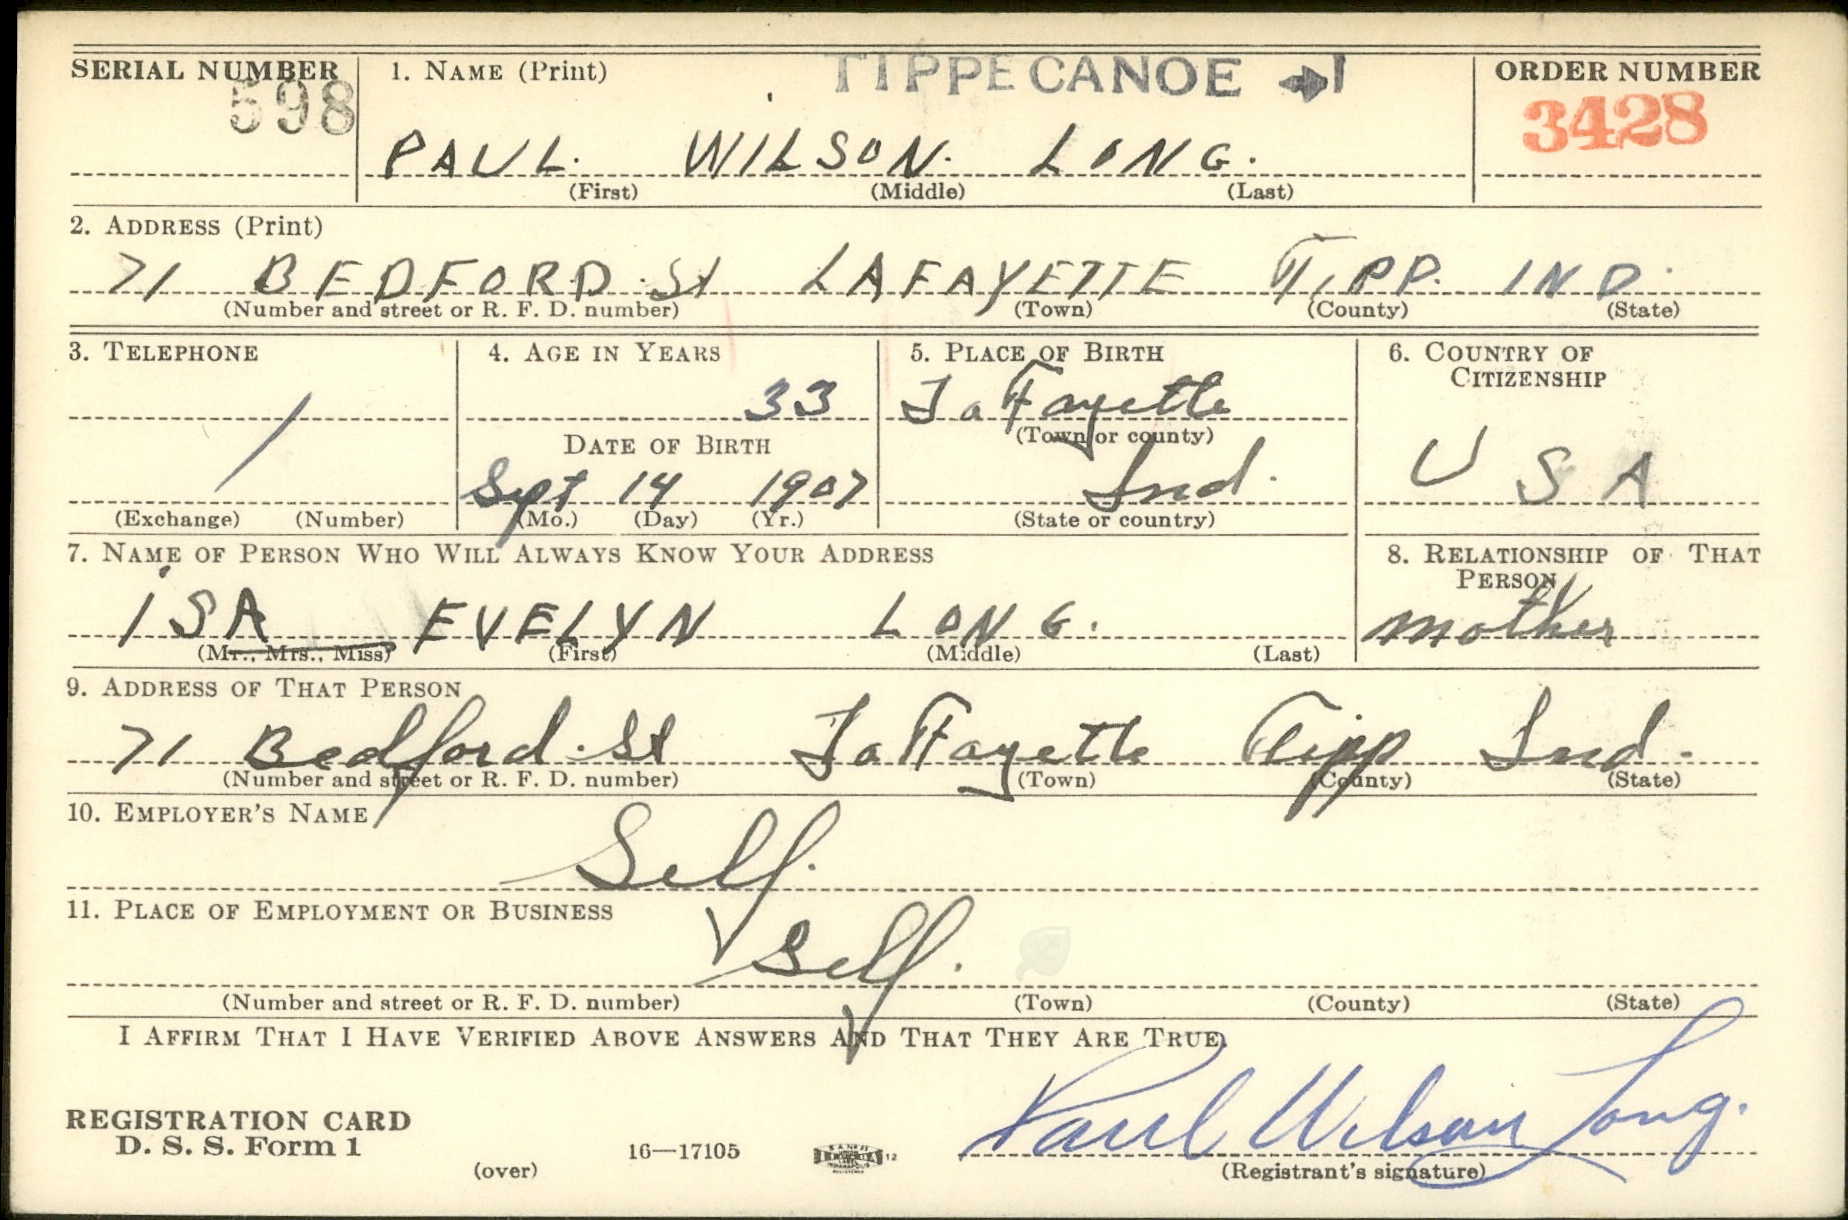 SERIAL NUMBER 1. NAME (Print) TIPPECANOE 1 ORDER NUMBER
598 3428
PAUL. WILSON. LONG.
(First) (Middle) (Last)
2. ADDRESS (Print)
71 BEDFORD St LAFAYETTE TIPP. IND.
(Number and street or R. F. D. number) (Town) (County) (State)
3. TELEPHONE 4. AGE IN YEARS 5. PLACE OF BIRTH 6. COUNTRY OF
CITIZENSHIP
33 LaFayette
(Town or county)
DATE OF BIRTH
Sept 14 1907 Ind. U S A
(Exchange) (Number) (Mo.) (Day) (Yr.) (State or country)
7. NAME OF PERSON WHO WILL ALWAYS KNOW YOUR ADDRESS 8. RELATIONSHIP OF THAT
PERSON
ISA EVELYN LONG. mother
(Mr., Mrs., Miss) (First) (Middle) (Last)
9. ADDRESS OF THAT PERSON
71 Bedford St LaFayette Tipp Ind.
(Number and street or R. F. D. number) (Town) (County) (State)
10. EMPLOYER'S NAME
Self.
11. PLACE OF EMPLOYMENT OR BUSINESS
Self.
(Number and street or R. F. D. number) (Town) (County) (State)
I AFFIRM THAT I HAVE VERIFIED ABOVE ANSWERS AND THAT THEY ARE TRUE.
REGISTRATION CARD
D. S. S. Form 1
(over) 16—17105 12 Paul Wilson Long.
(Registrant's signature)